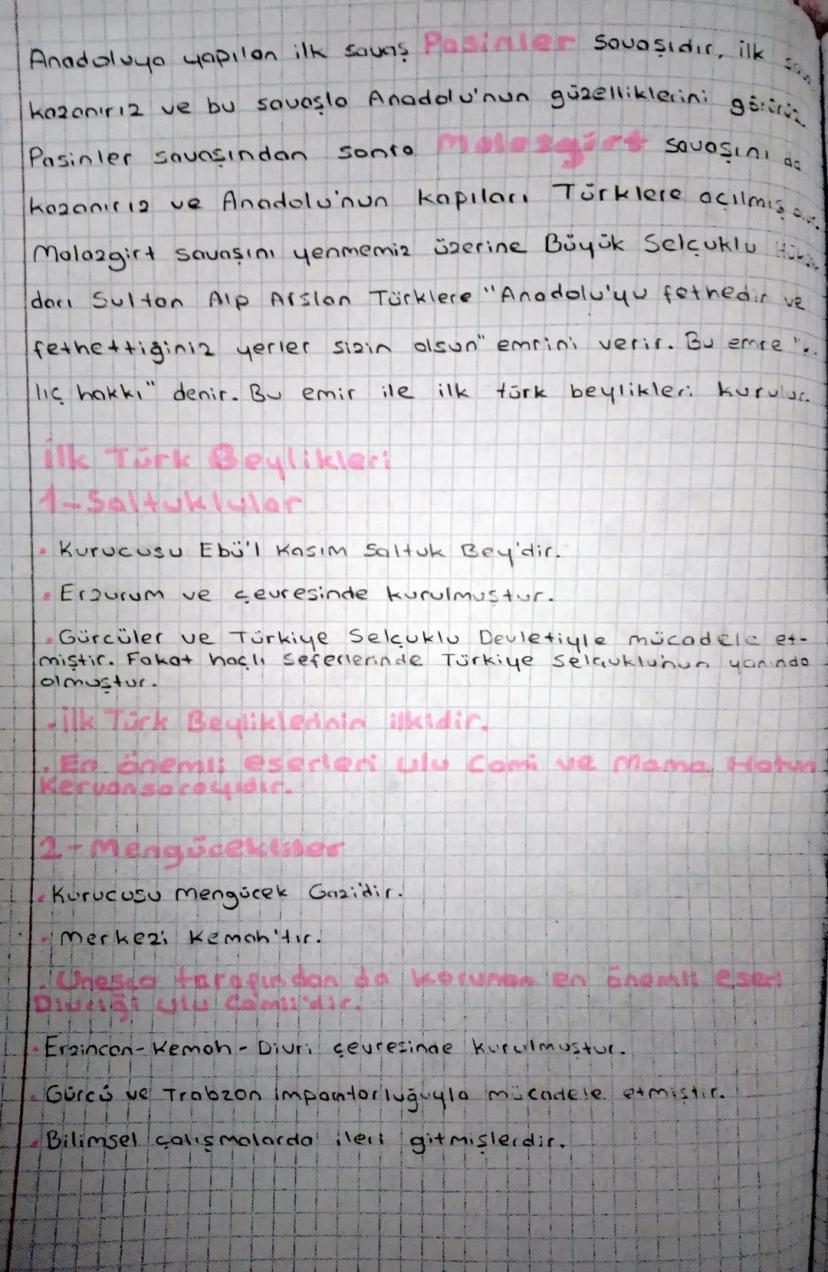 Anadoluya yapılan ilk savaş Pasinler savaşıdır, ilk
kazanırız ve bu savaşla Anadolu'nun güzelliklerini görürüz
Pasinler savaşından sonra Malazgirt savaşını da
kazanırız ve Anadolu'nun kapıları Türklere açılmış
Malazgirt savaşını yenmemiz üzerine Büyük Selçuklu
darı Sultan Alp Arslan Türklere "Anadolu'yu fethedin ve
fethettiğiniz yerler sizin olsun" emrini verir. Bu emre
lıç hakkı" denir. Bu emir ile ilk türk beylikleri kurulur.
İlk Türk Beylikleri
1-Saltuklular
• Kurucusu Ebü'l Kasım Saltuk Bey'dir.
• Erzurum ve çevresinde kurulmuştur.
• Gürcüler ve Türkiye Selçuklu Devletiyle mücadele et-
miştir. Fakat haçlı seferlerinde Türkiye Selçuklu'nun yanında
olmuştur.
• İlk Türk Beyliklerinin ilkidir.
• En önemli eserleri Ulu Cami ve Mama Hatun
Kervansarayıdır.
2-Mengücekliler
• Kurucusu Mengücek Gazi'dir.
• Merkezi Kemah'tır.
• Unesco tarafından da korunan en önemli eseri
Divriği Ulu Camii'dir.
• Erzincan-Kemah-Divri çevresinde kurulmuştur.
• Gürcü ve Trabzon İmparatorluğuyla mücadele etmiştir.
• Bilimsel çalışmalarda ileri gitmişlerdir.